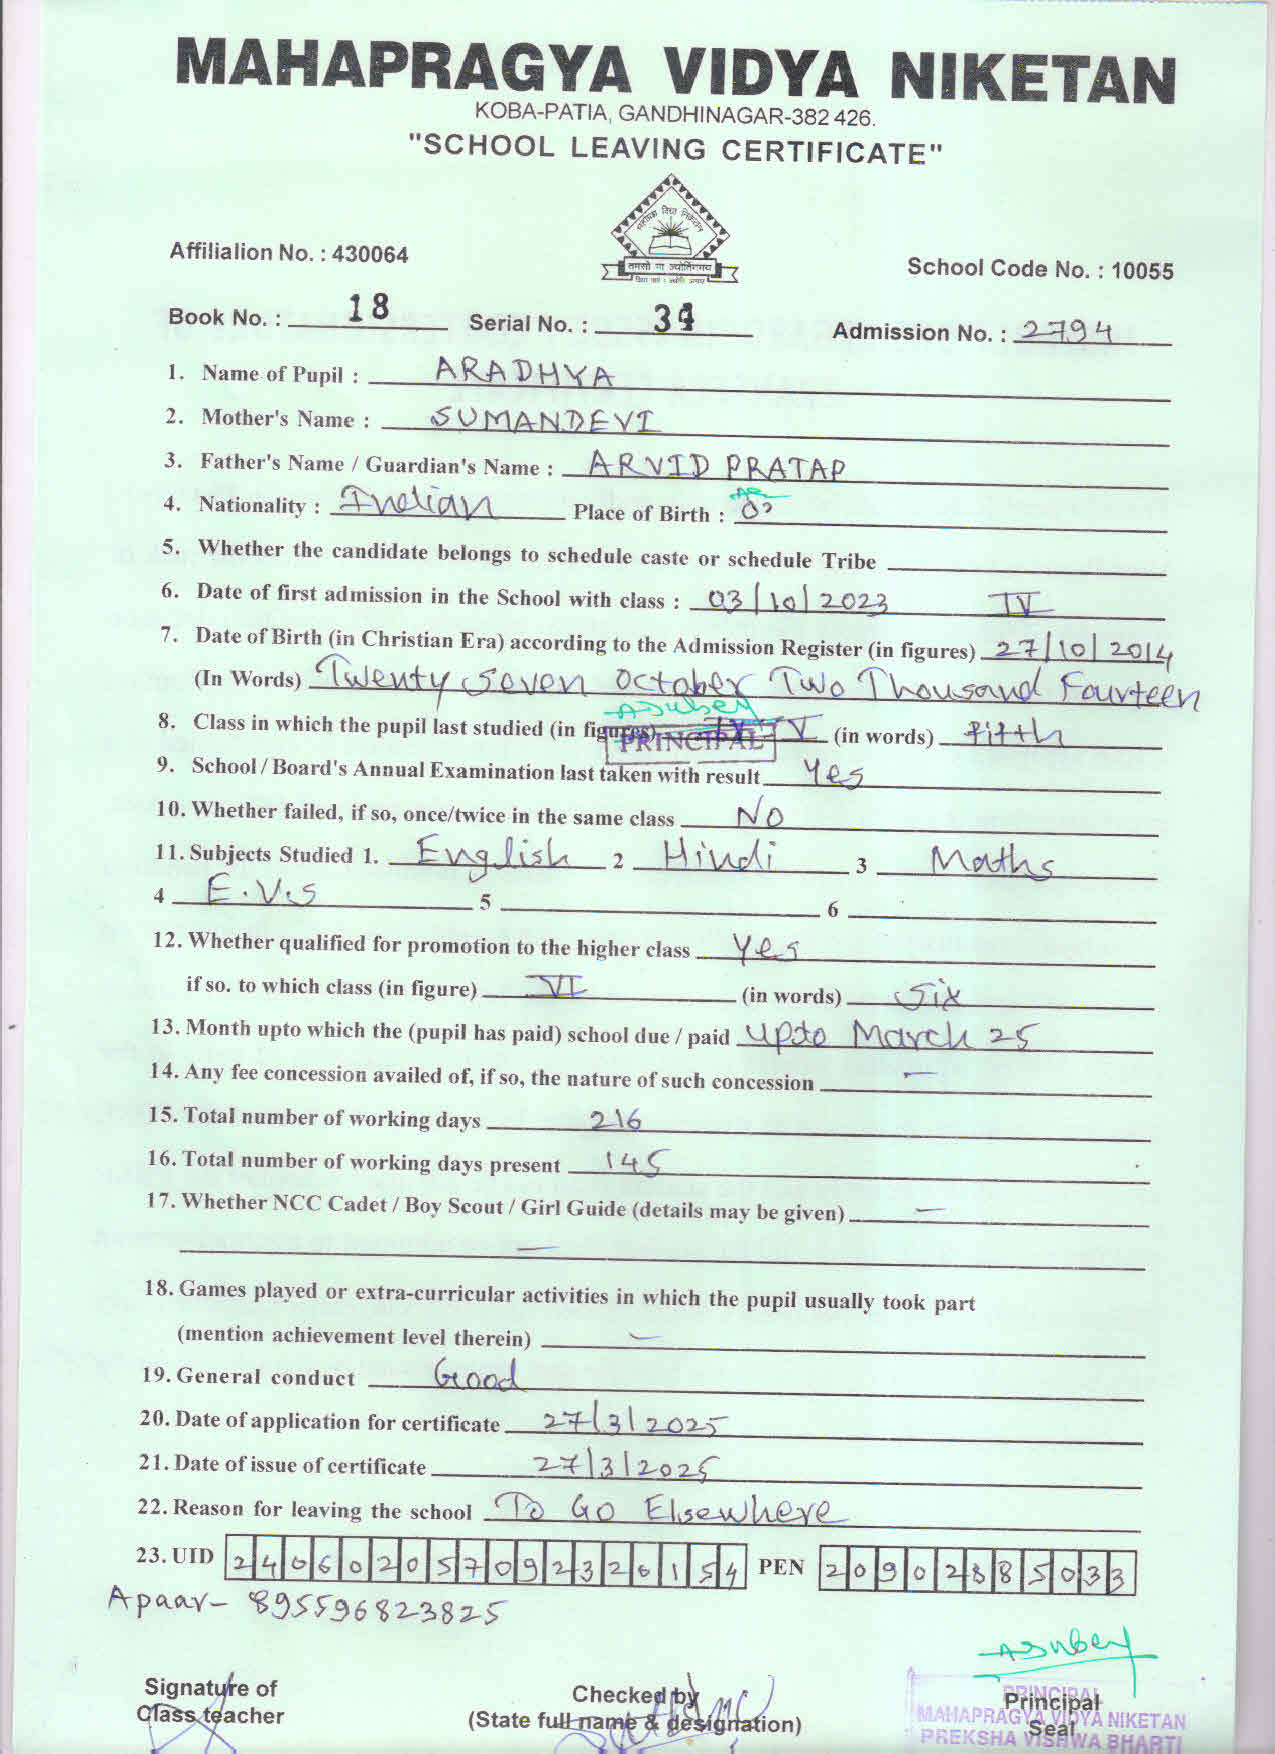 MAHAPRAGYA VIDYA NIKETAN
KOBA-PATIA, GANDHINAGAR-382 426.
"SCHOOL LEAVING CERTIFICATE"
महाप्रज्ञ विद्या निकेतन
तमसो मा ज्योतिर्गमय
Affilialion No. : 430064
School Code No. : 10055
Book No. : 18 Serial No. : 34 Admission No. : 2794
1. Name of Pupil : ARADHYA
2. Mother's Name : SUMANDEVI
3. Father's Name / Guardian's Name : ARVID PRATAP
4. Nationality : Indian Place of Birth :
5. Whether the candidate belongs to schedule caste or schedule Tribe
6. Date of first admission in the School with class : 03/10/2023 IV
7. Date of Birth (in Christian Era) according to the Admission Register (in figures) 27/10/2014
(In Words) Twenty Seven October Two Thousand Fourteen
8. Class in which the pupil last studied (in figures) V (in words) Fifth
PRINCIPAL
9. School / Board's Annual Examination last taken with result Yes
10. Whether failed, if so, once/twice in the same class NO
11. Subjects Studied 1. English 2 Hindi 3 Maths
4 E.V.S 5 6
12. Whether qualified for promotion to the higher class Yes
if so. to which class (in figure) VI (in words) Six
13. Month upto which the (pupil has paid) school due / paid upto March 25
14. Any fee concession availed of, if so, the nature of such concession —
15. Total number of working days 216
16. Total number of working days present 145
17. Whether NCC Cadet / Boy Scout / Girl Guide (details may be given) —
—
18. Games played or extra-curricular activities in which the pupil usually took part
(mention achievement level therein) —
19. General conduct Good
20. Date of application for certificate 27/3/2025
21. Date of issue of certificate 27/3/2025
22. Reason for leaving the school To Go Elsewhere
23. UID 240602057092320154 PEN 20902885033
Apaar- 895596823825
Signature of
Class teacher
Checked by
(State full name & designation)
Principal
Seal
PRINCIPAL
MAHAPRAGYA VIDYA NIKETAN
PREKSHA VISHWA BHARTI